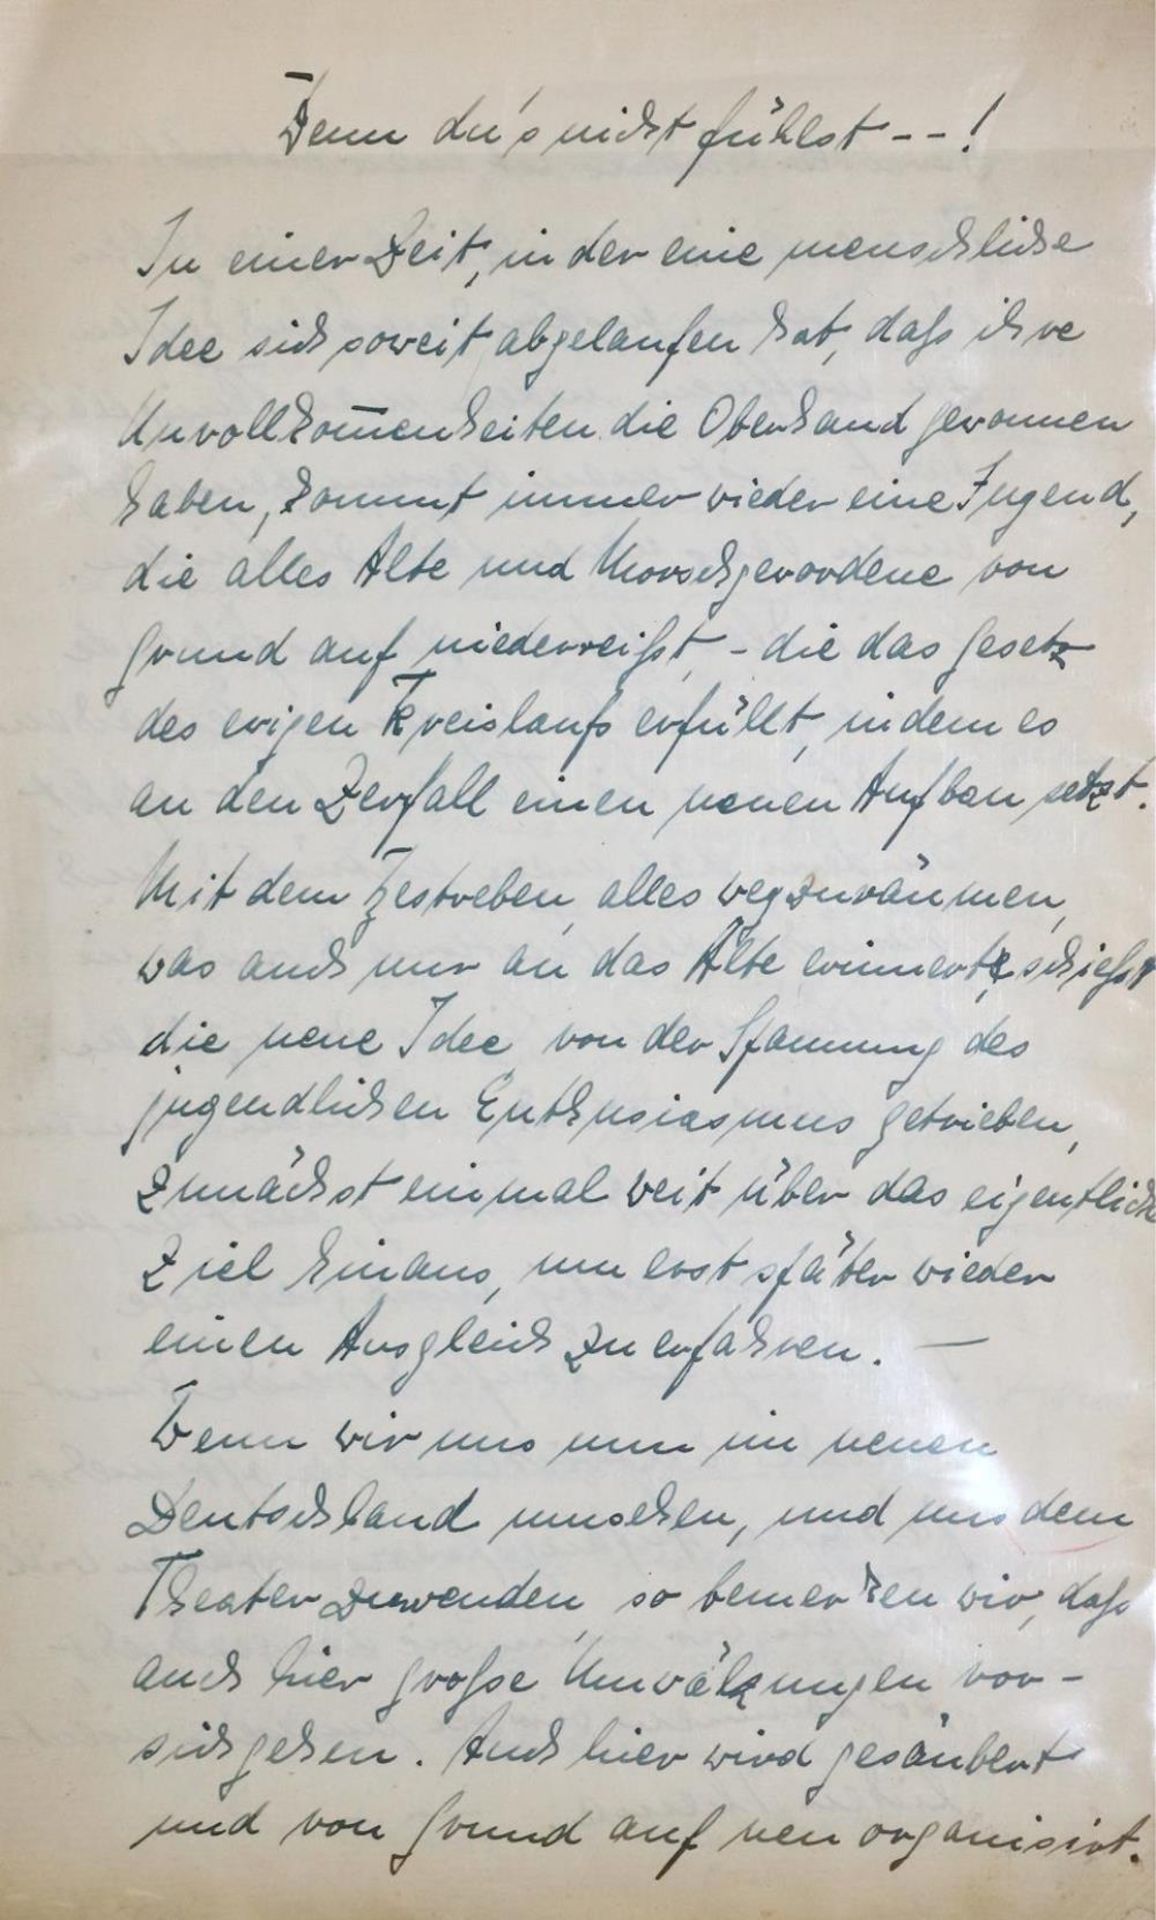 Wenn du's nicht fühlst --!
In einer Zeit, in der eine menschliche
Idee sich soweit abgelaufen hat, daß ihre
Unvollkom̅enheiten die Oberhand gewonnen
haben, kommt immer wieder eine Jugend,
die alles Alte und Morschgewordene von
Grund auf niederreißt, - die das Gesetz
des ewigen Kreislaufs erfüllt, indem es
an den Zerfall einen neuen Aufbau setzt.
Mit dem Bestreben, alles wegzuräumen,
was auch nur an das Alte erinnert, schießt
die neue Idee von der Spannung des
jugendlichen Enthusiasmus getrieben,
zunächst einmal weit über das eigentliche
Ziel hinaus, um erst später wieder
einen Ausgleich zu erfahren. —
Wenn wir uns nun im neuen
Deutschland umsehen, und uns dem
Theater zuwenden, so bemerken wir, daß
auch hier große Umwälzungen vor-
sichgehen. Auch hier wird gesäubert
und von Grund auf neu organisirt.